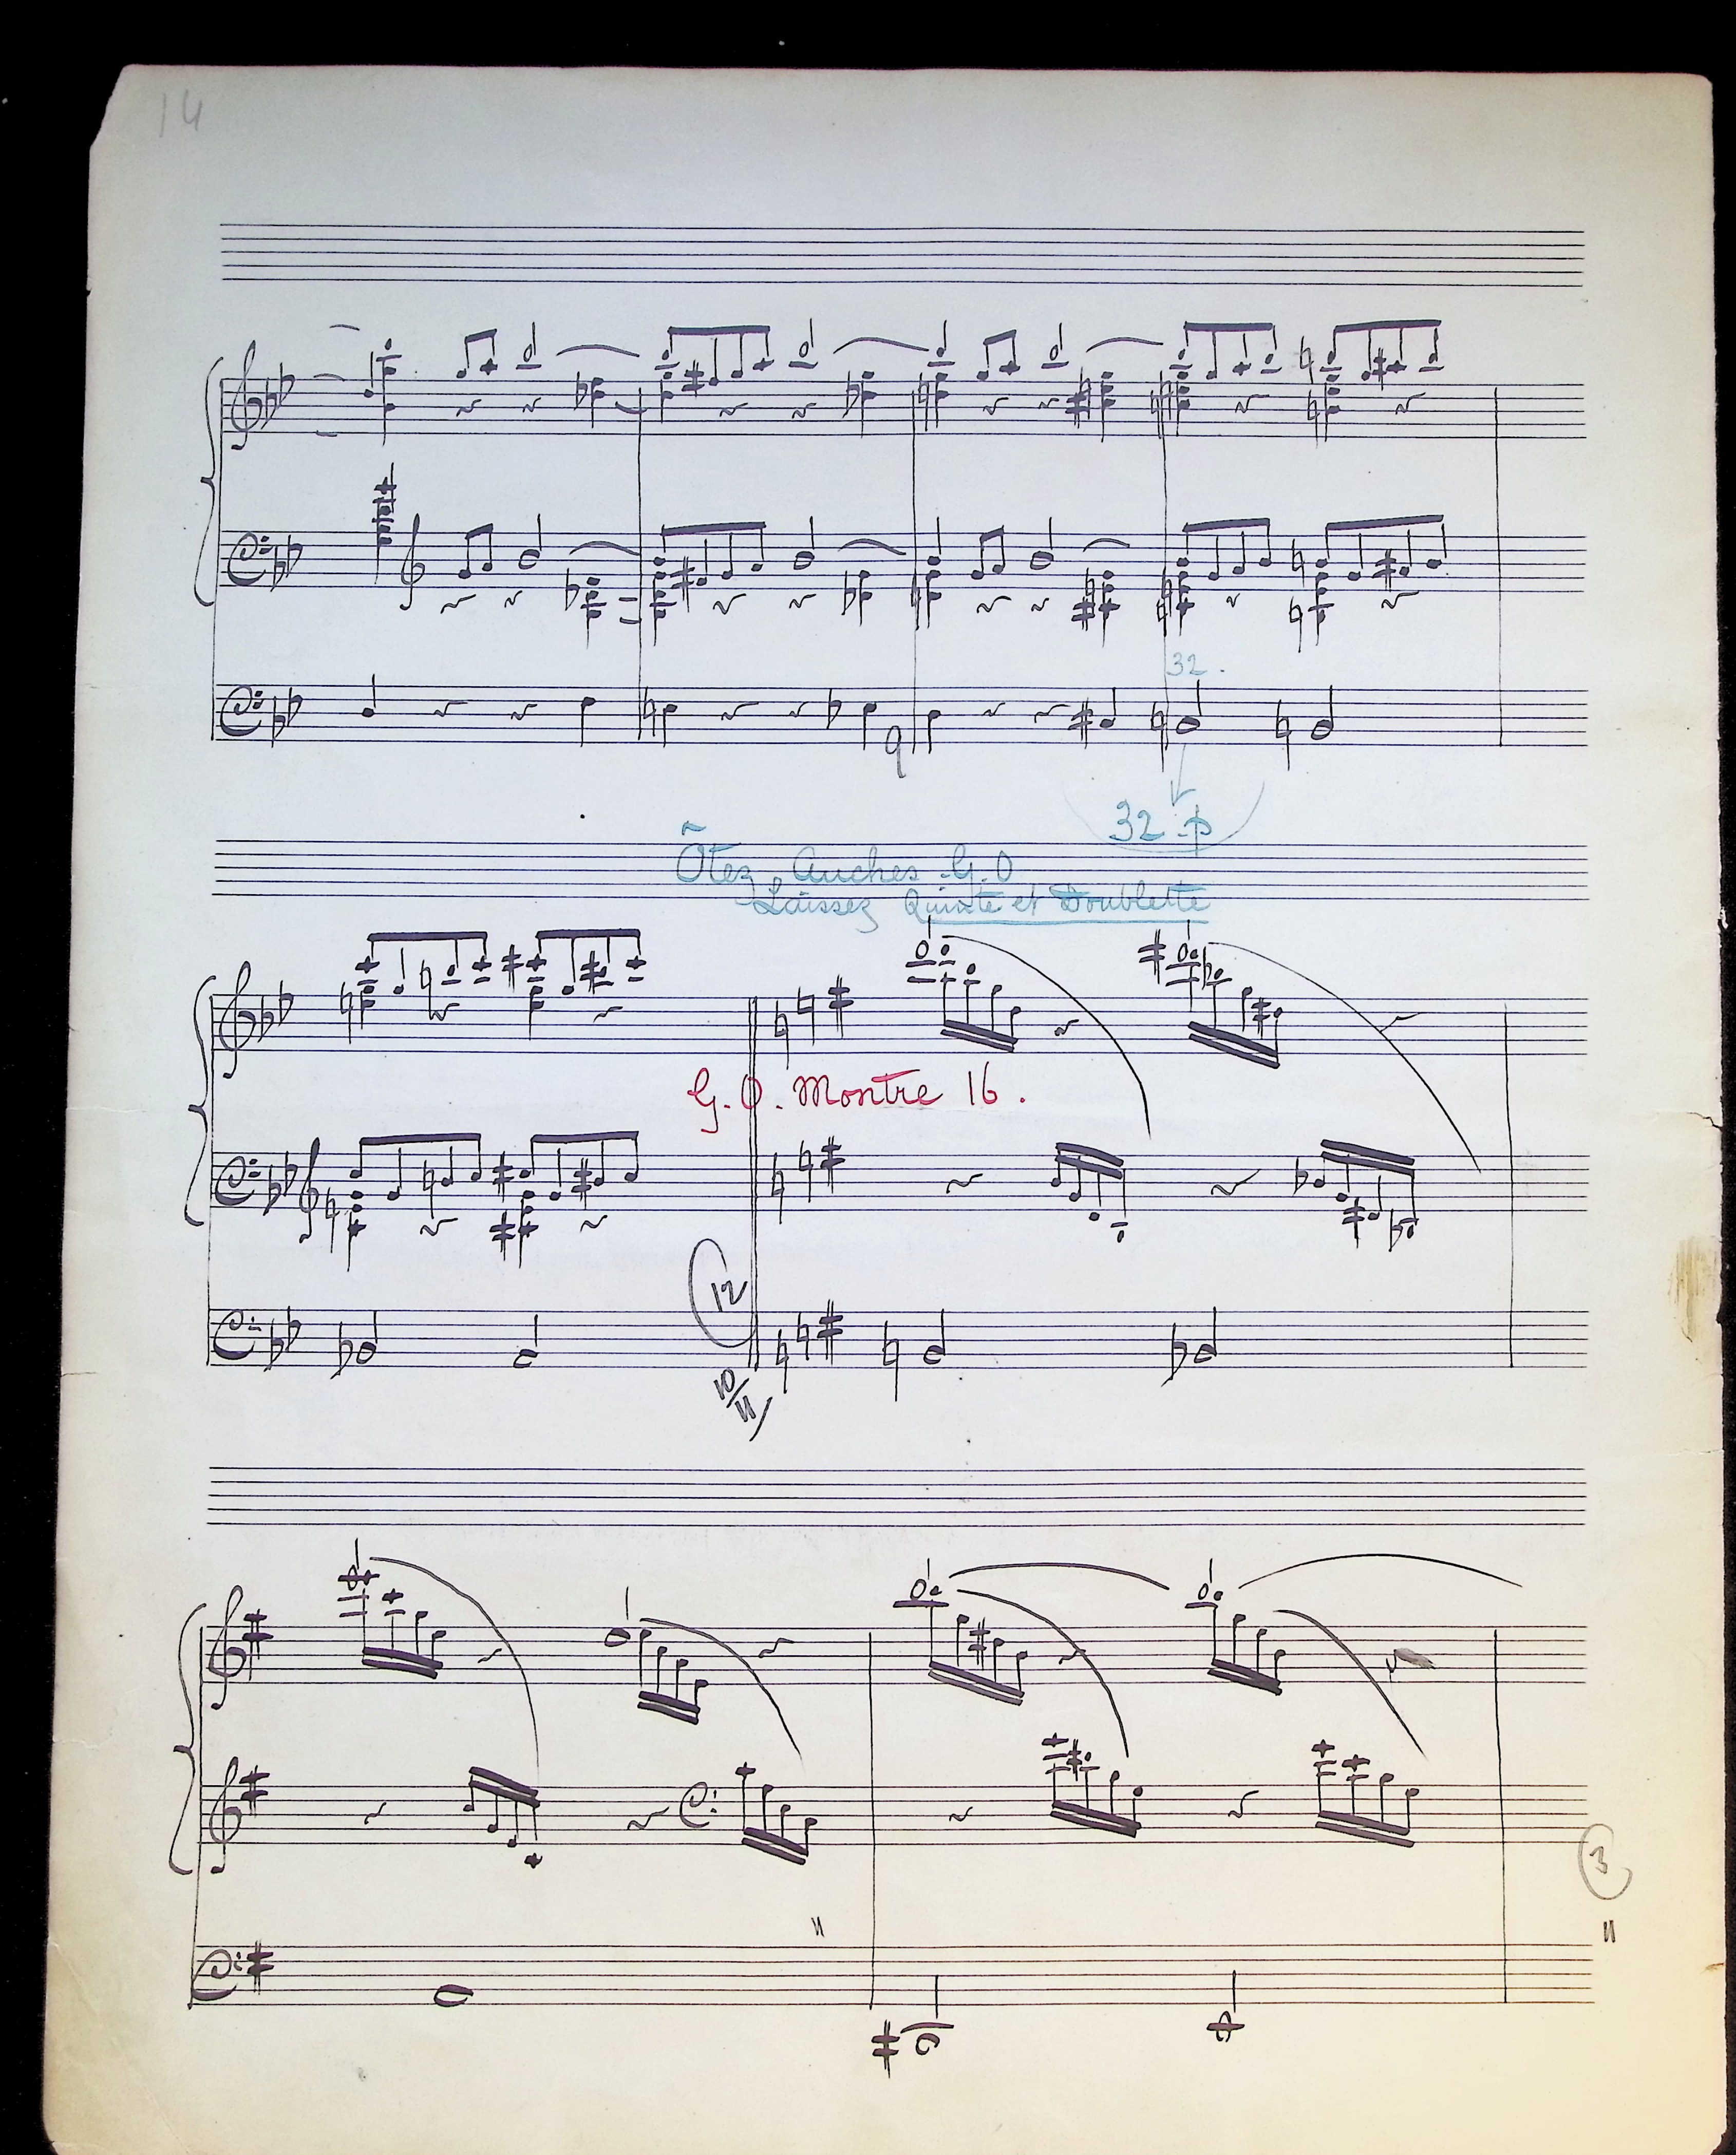 14
32.
9
32 p
Õtez Anches G.O
Laissez Quinte et Doublette
G.O. Montre 16.
12
10/11
3